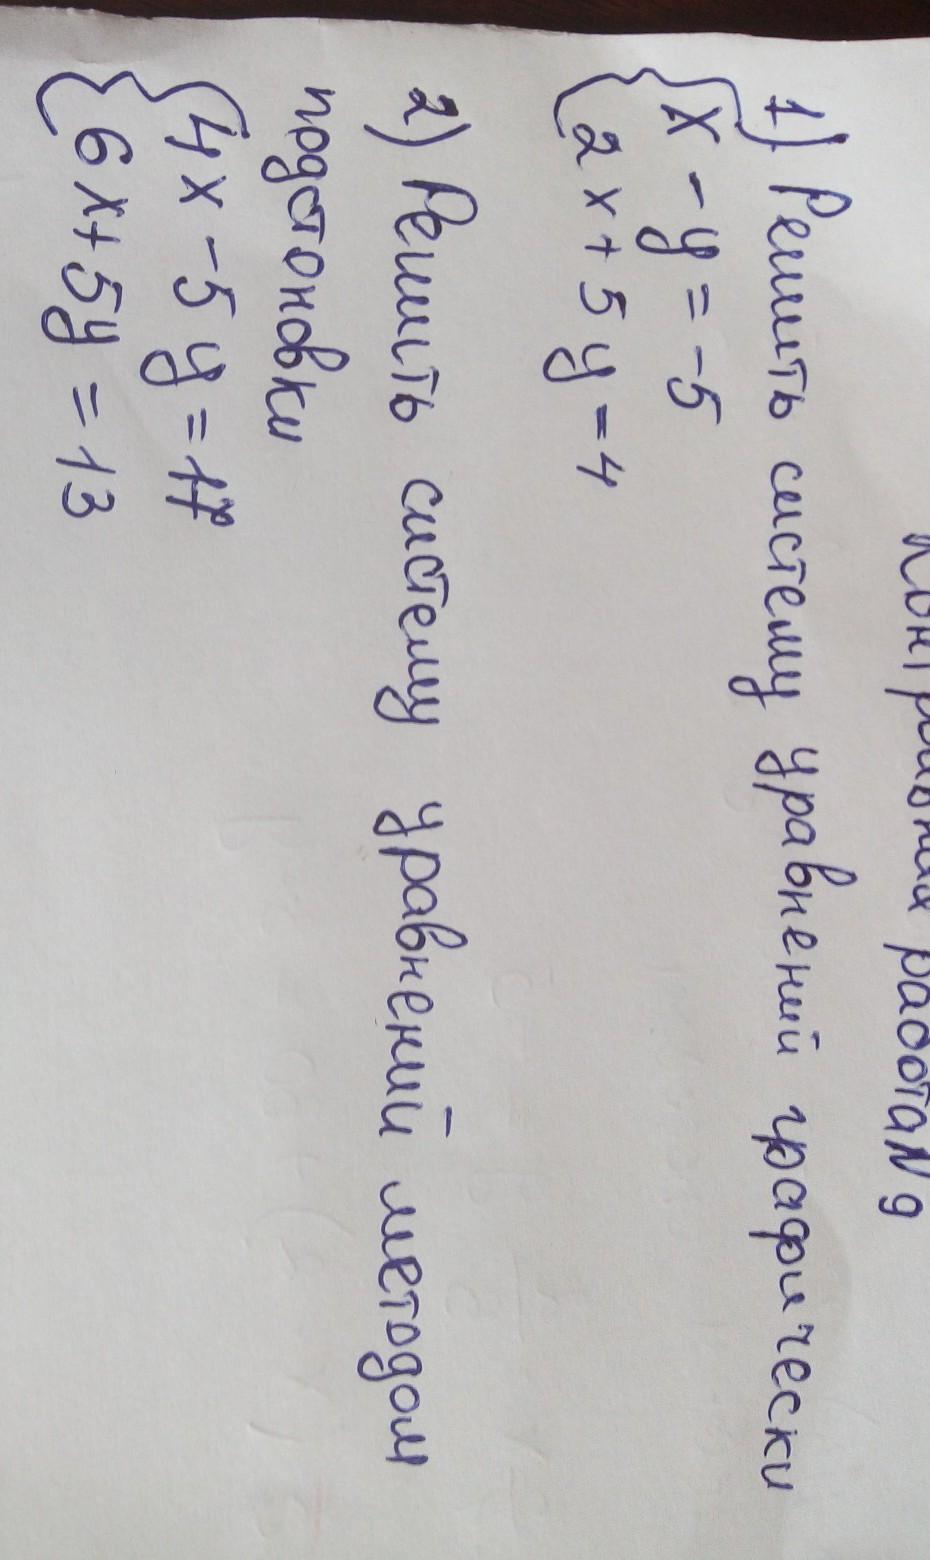 Контрольная работа N 9
1) Решить систему уравнений графически
{ x - y = -5
{ 2x + 5y = 4
2) Решить систему уравнений методом
подстоновки
{ 4x - 5y = 17
{ 6x + 5y = 13